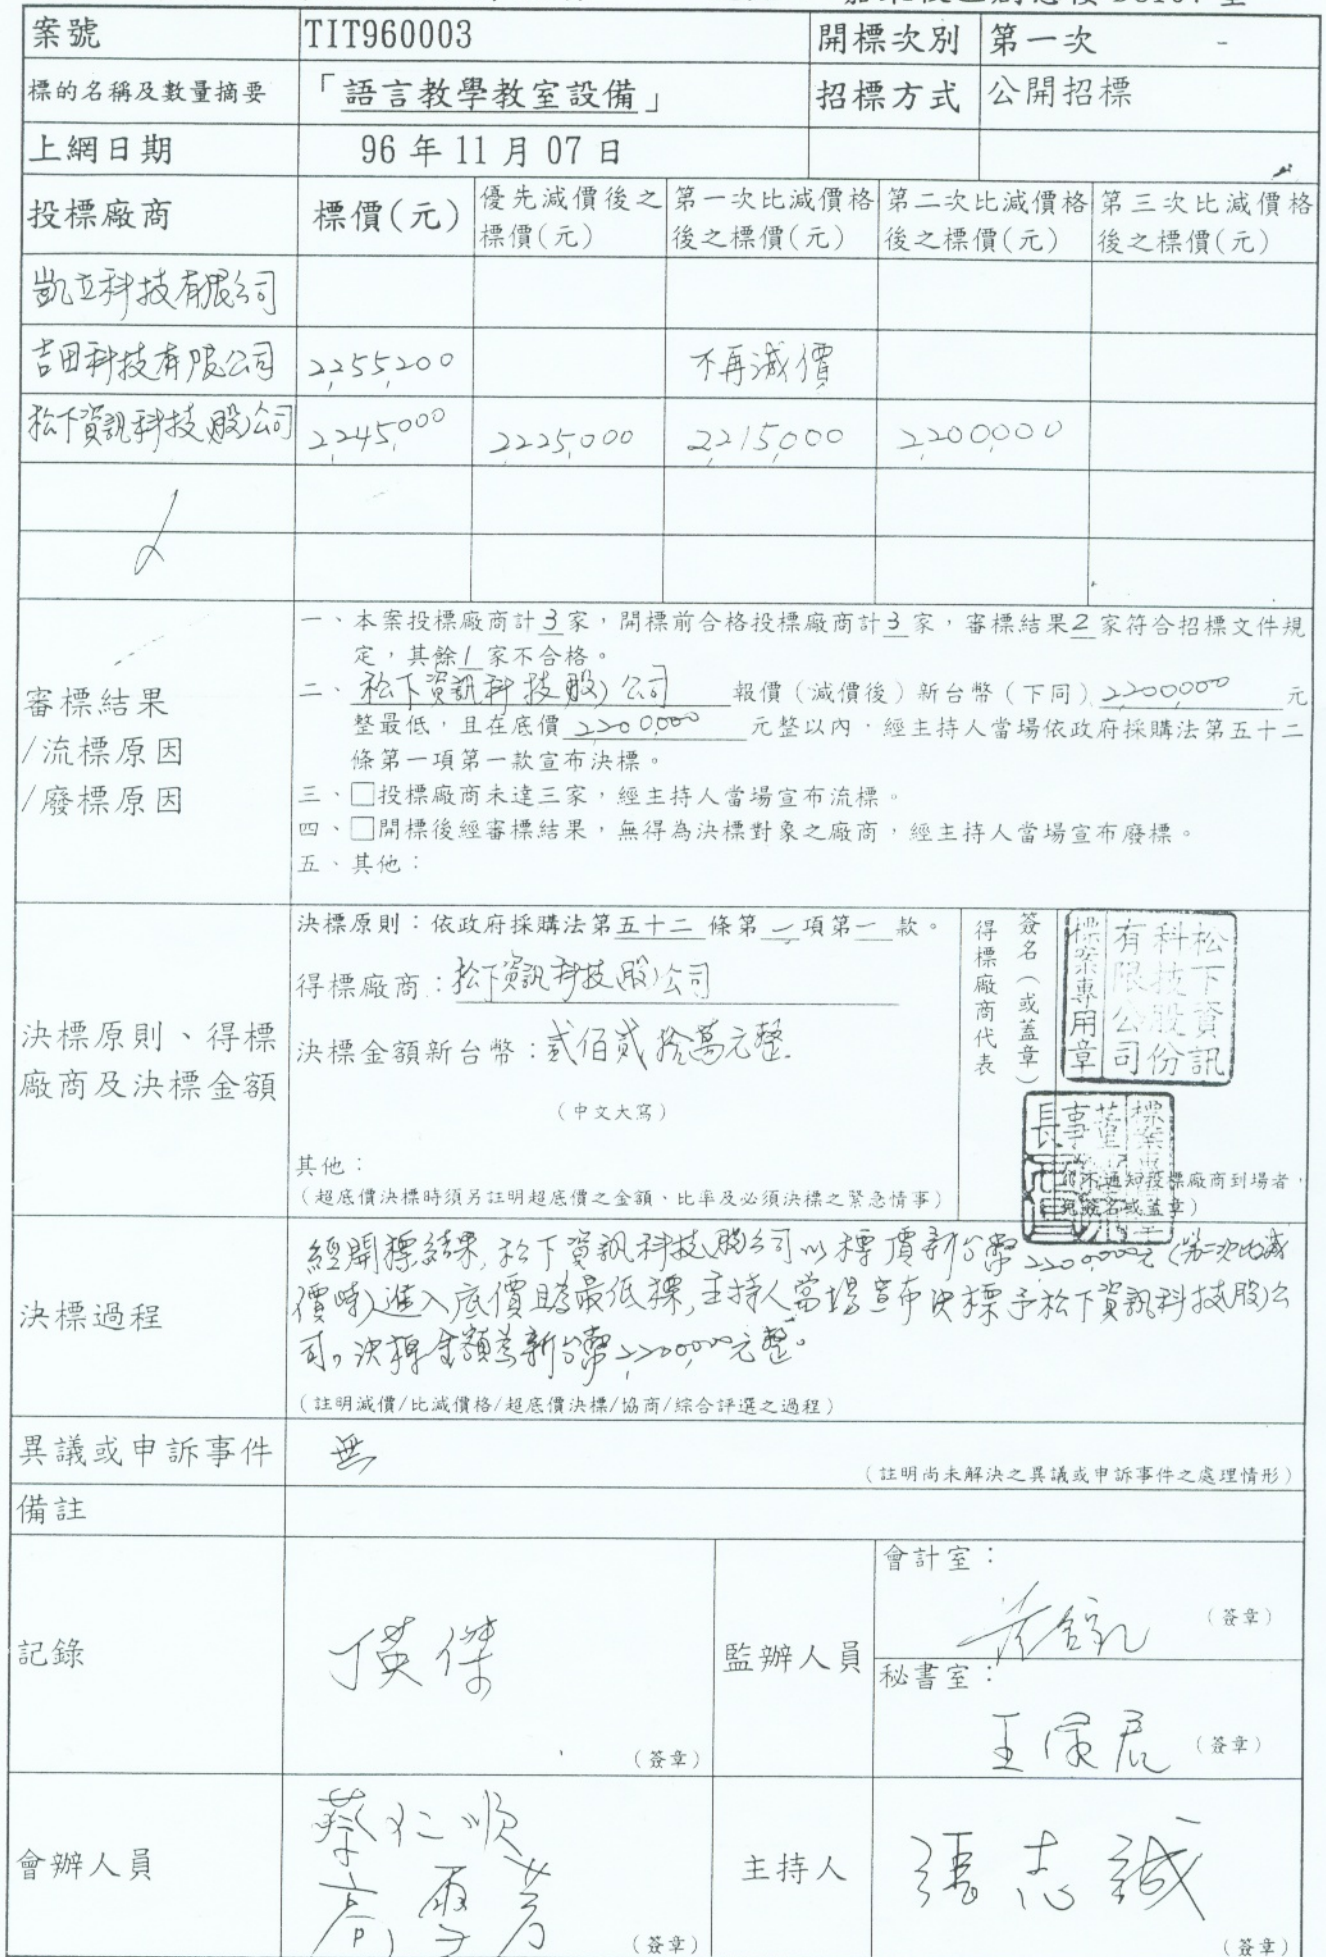 案號 TIT960003 開標次別 第一次
標的名稱及數量摘要 「語言教學教室設備」 招標方式 公開招標
上網日期 96 年 11 月 07 日
投標廠商 標價(元) 優先減價後之標價(元) 第一次比減價格後之標價(元) 第二次比減價格後之標價(元) 第三次比減價格後之標價(元)
凱立科技有限公司
吉田科技有限公司 2,255,200 不再減價
松下資訊科技(股)公司 2,245,000 2,225,000 2,215,000 2,200,000
審標結果
/流標原因
/廢標原因
一、本案投標廠商計 3 家，開標前合格投標廠商計 3 家，審標結果 2 家符合招標文件規
定，其餘 1 家不合格。
二、松下資訊科技(股)公司 報價（減價後）新台幣（下同）2,200,000 元
整最低，且在底價 2,200,000 元整以內，經主持人當場依政府採購法第五十二
條第一項第一款宣布決標。
三、□投標廠商未達三家，經主持人當場宣布流標。
四、□開標後經審標結果，無得為決標對象之廠商，經主持人當場宣布廢標。
五、其他：
決標原則、得標
廠商及決標金額
決標原則：依政府採購法第五十二條第一項第一款。
得標廠商：松下資訊科技(股)公司
決標金額新台幣：貳佰貳拾萬元整
（中文大寫）
其他：
（超底價決標時須另註明超底價之金額、比率及必須決標之緊急情事）
得標廠商代表
簽名（或蓋章）
松下資訊
科技股份
有限公司
標案專用章
董事長
不通知投標廠商到場者，
免簽名或蓋章）
決標過程
經開標結果，松下資訊科技(股)公司以標價新台幣2,200,000元（第二次比減
價時）進入底價且為最低標，主持人當場宣布決標予松下資訊科技(股)公
司。決標金額為新台幣2,200,000元整。
（註明減價/比減價格/超底價決標/協商/綜合評選之過程）
異議或申訴事件 無
（註明尚未解決之異議或申訴事件之處理情形）
備註
記錄 丁英傑 （簽章）
監辦人員
會計室：
（簽章）
秘書室：
（簽章）
會辦人員 蔡仁順
高雪芳 （簽章）
主持人 張志誠 （簽章）